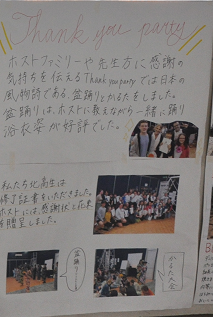 Thank you party
ホストファミリーや先生方に感謝の
気持ちを伝えるThank you partyでは日本の
風物詩である盆踊りとかるたをしました。
盆踊りは、ホストに教えながら一緒に踊り
浴衣姿が好評でした。
私たち北高生は
修了証書をいただきました。
ホストには、感謝状と花束
を贈呈しました。
盆踊り
かるた大会